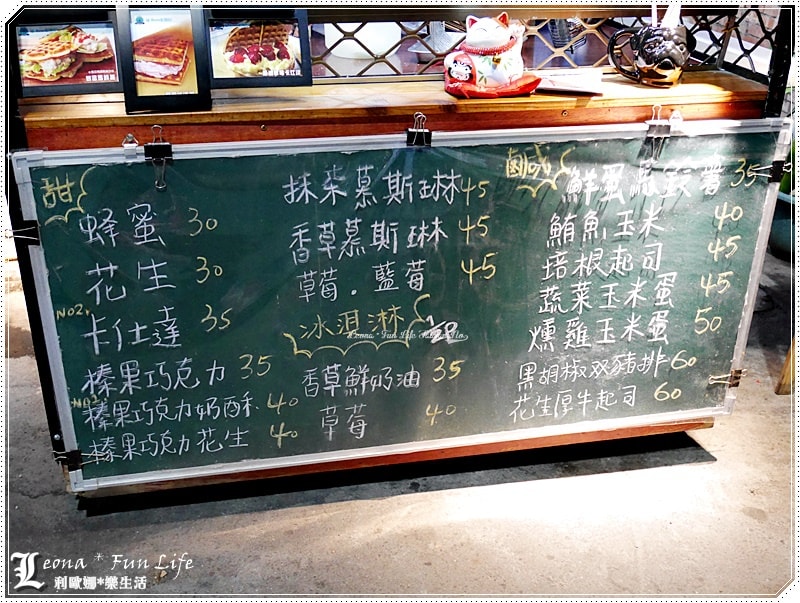 甜
蜂蜜 30
花生 30
NO2. 卡仕達 35
榛果巧克力 35
榛果巧克力奶酥 40
榛果巧克力花生 40
抹茶慕斯琳 45
香草慕斯琳 45
草莓．藍莓 45
冰淇淋
香草鮮奶油 35
草莓 40
鹹
鮮蛋 薯 35
鮪魚玉米 40
培根起司 45
蔬菜玉米蛋 45
燻雞玉米蛋 50
黑胡椒双豬排 60
花生厚牛起司 60
Leona * Fun Life
利歐娜*樂生活